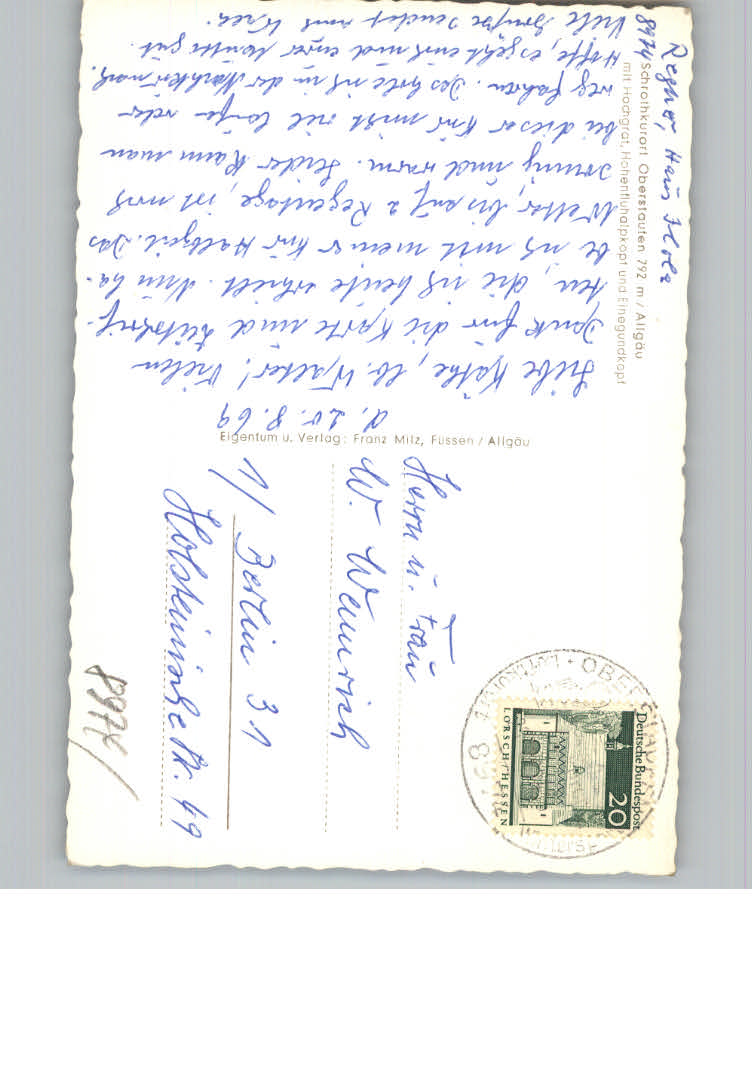 Regner, Haus Ilole
8974
Schrothkurort Oberstaufen 792 m / Allgäu
mit Hochgrat, Hohenfluhalpkopf und Einegundkopf
d. 20.8.69
Liebe Käthe, lb. Walter! Vielen
Dank für die Karte und Zuschrif-
ten, die ich heute erhielt. Nun ha-
be ich mit meiner Kur Halbzeit. Das
Wetter, bis auf 2 Regentage, ist noch
sonnig und warm. Leider kann man
bei dieser Kur nicht viel laufen oder
weg fahren. Das hole ich in der Nachkur nach.
Hoffe, es geht euch und eurer Mutter gut.
Viele Grüße sendet euch
Eigentum u. Verlag: Franz Milz, Füssen / Allgäu
Herrn u. Frau
W. Weinrich
1/ Berlin 31
Holsteinische Str. 49
8974
Deutsche Bundespost
20
LORSCH/HESSEN